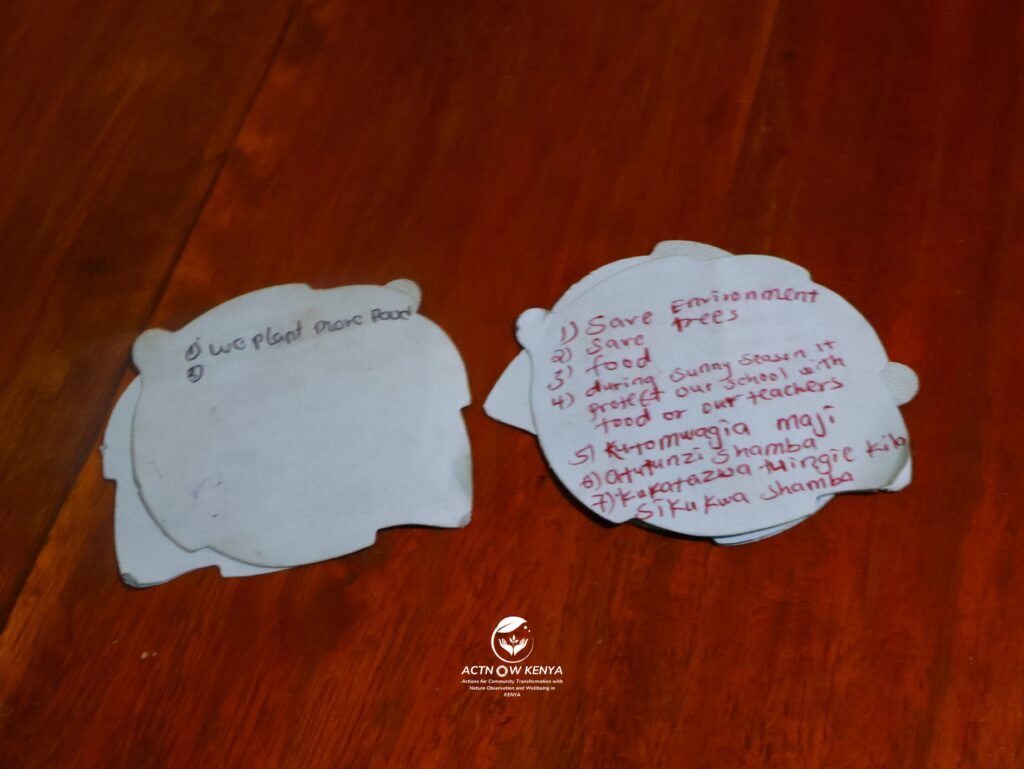 1) We plant more Food
2)
1) Save Environment
2) Save trees
3) food
4) during sunny season it
protect our school with
food or our teachers
5) Kutomwagia maji
6) atutunzi shamba
7) Kukatazwa tuingie kila
siku kwa shamba
ACTNOW KENYA
Actions for Community Transformation with
Nature Observation and Wellbeing in
KENYA